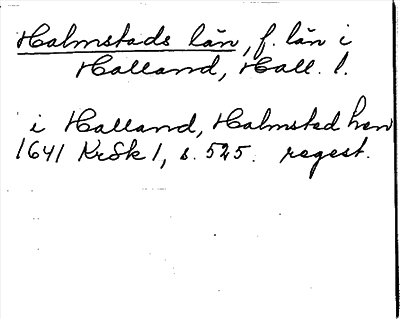 Halmstads län, f. län i
Halland, Hall. l.
i Halland, Halmsted hen
1641 KrSk 1, s. 525. regest.